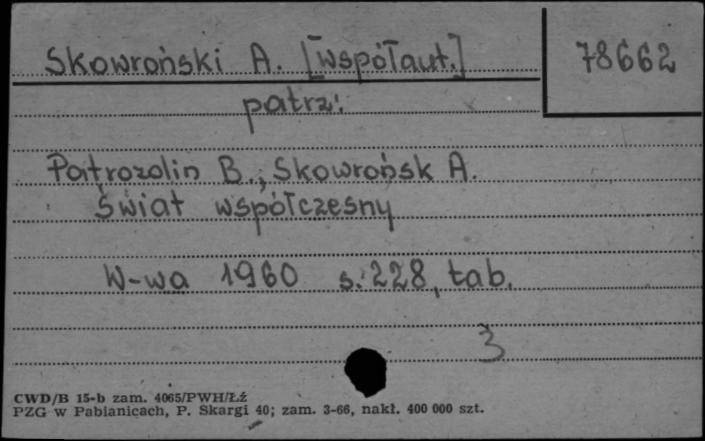 Skowroński A. [współaut.]
78662
patrz:
Patrozolin B., Skowrońsk A.
Świat współczesny
W-wa 1960 s. 228, tab.
3
CWD/B 15-b zam. 4065/PWH/Łź
PZG w Pabianicach, P. Skargi 40; zam. 3-66, nakł. 400 000 szt.